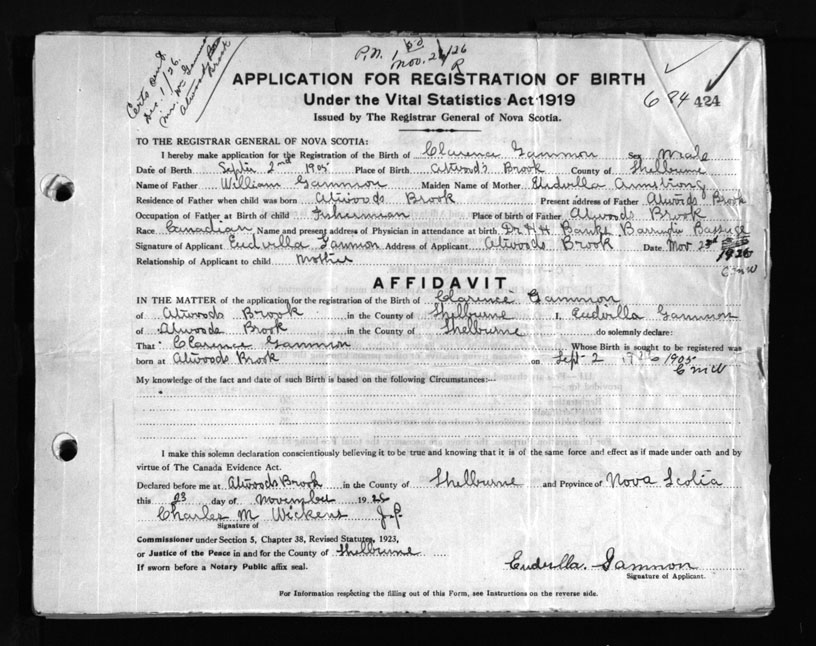 Certs only
Dec 1/26.
Mr. Wm Gammon
Atwoods Brook
P.N. 1 pd
Nov. 26/26
R
APPLICATION FOR REGISTRATION OF BIRTH
Under the Vital Statistics Act 1919
684 424
Issued by The Registrar General of Nova Scotia.
TO THE REGISTRAR GENERAL OF NOVA SCOTIA:
I hereby make application for the Registration of the Birth of Clarence Gammon Sex Male
Date of Birth Septbr 2nd 1905 Place of Birth Atwoods Brook County of Shelburne
Name of Father William Gammon Maiden Name of Mother Eudvilla Armstrong
Residence of Father when child was born Atwoods Brook Present address of Father Atwoods Brook
Occupation of Father at Birth of child Fisherman Place of birth of Father Atwoods Brook
Race Canadian Name and present address of Physician in attendance at birth Dr. H H Banks Barrington Passage
Signature of Applicant Eudvilla Gammon Address of Applicant Atwoods Brook Date Nov 23rd 1926
Relationship of Applicant to child Mother CMW
AFFIDAVIT
IN THE MATTER of the application for the registration of the Birth of Clarence Gammon
of Atwoods Brook in the County of Shelburne I, Eudvilla Gammon
of Atwoods Brook in the County of Shelburne do solemnly declare:
That Clarence Gammon Whose Birth is sought to be registered was
born at Atwoods Brook on Sept 2 1905
CMW
My knowledge of the fact and date of such Birth is based on the following Circumstances:—
I make this solemn declaration conscientiously believing it to be true and knowing that it is of the same force and effect as if made under oath and by
virtue of The Canada Evidence Act.
Declared before me at Atwoods Brook in the County of Shelburne and Province of Nova Scotia
this 23 day of November 1926
Charles M Wickens J.P.
Signature of
Commissioner under Section 5, Chapter 38, Revised Statutes, 1923,
or Justice of the Peace in and for the County of Shelburne
If sworn before a Notary Public affix seal.
Eudvilla Gammon
Signature of Applicant.
For Information respecting the filling out of this Form, see Instructions on the reverse side.